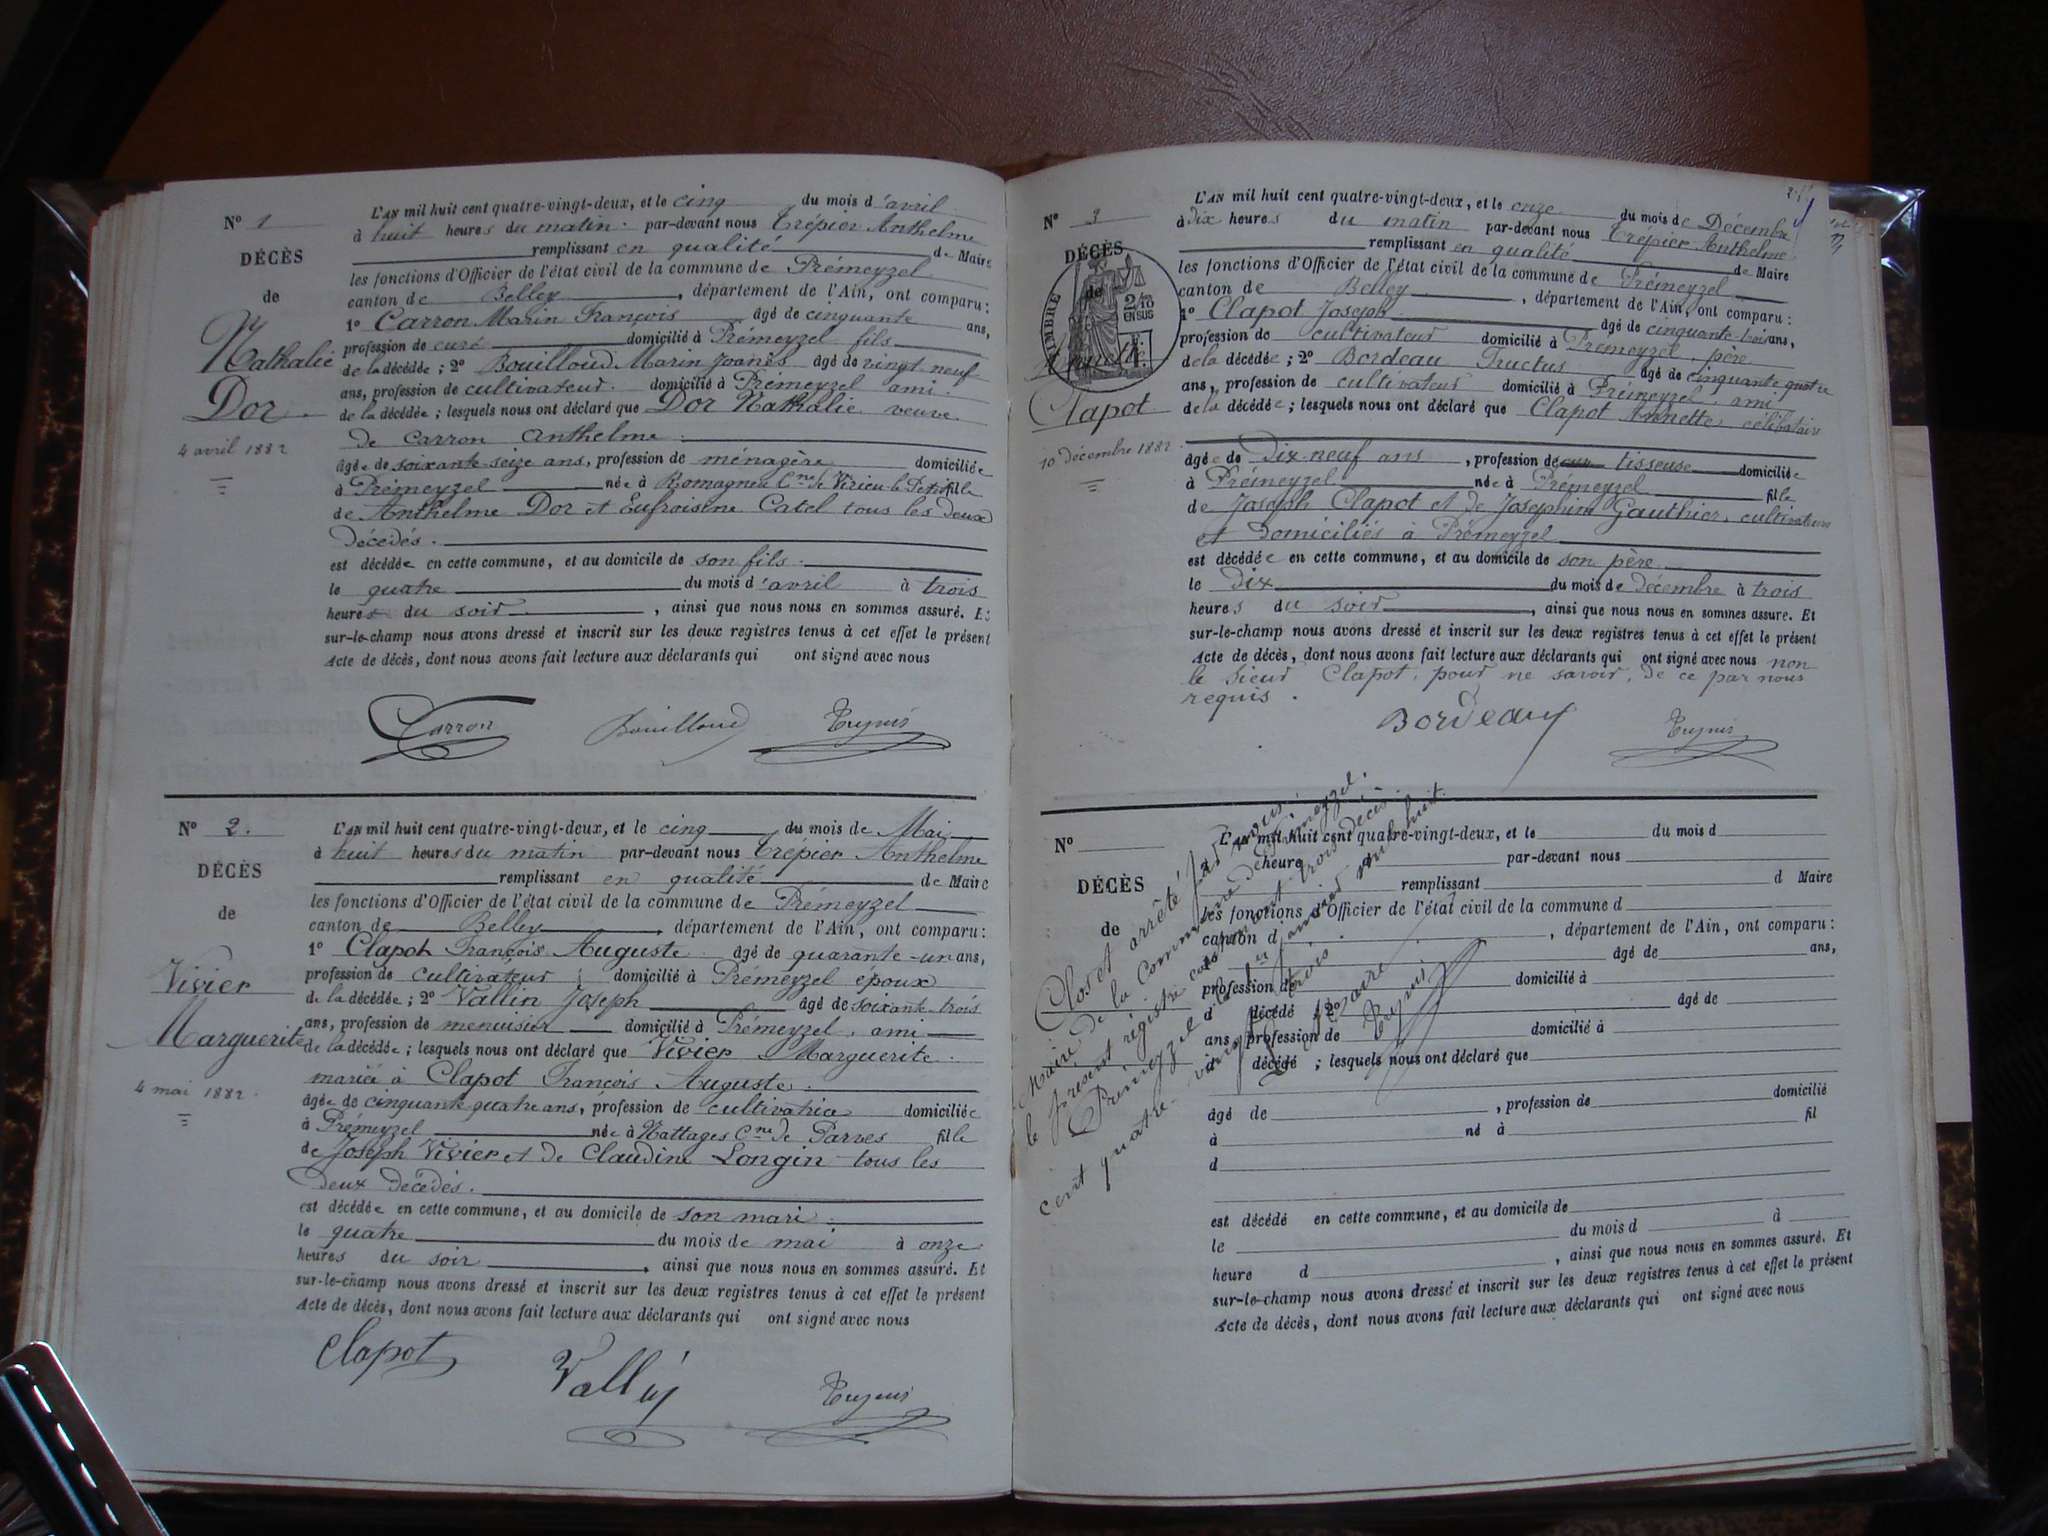 N° 1
DÉCÈS
de
Nathalie
Dor
4 avril 1882
L'AN mil huit cent quatre-vingt-deux, et le cinq du mois d'avril
à huit heures du matin par-devant nous Trépier Anthelme
remplissant en qualité de Maire
les fonctions d'Officier de l'état civil de la commune de Prémeyzel
canton de Belley, département de l'Ain, ont comparu :
1° Carron Marin François âgé de cinquante ans,
profession de curé domicilié à Prémeyzel fils
de la décédée ; 2° Bouilloud Marin Joanès âgé de vingt neuf
ans, profession de cultivateur. domicilié à Prémeyzel ami.
de la décédée ; lesquels nous ont déclaré que Dor Nathalie veuve
de Carron Anthelme
âgée de soixante-seize ans, profession de ménagère domiciliée
à Prémeyzel née à Romagneu Cne de Virieu le Petit fille
de Anthelme Dor et Eufroisine Catel tous les deux
décédés.
est décédée en cette commune, et au domicile de son fils.
le quatre du mois d'avril à trois
heures du soir, ainsi que nous nous en sommes assuré. Et
sur-le-champ nous avons dressé et inscrit sur les deux registres tenus à cet effet le présent
Acte de décès, dont nous avons fait lecture aux déclarants qui ont signé avec nous
Carron Bouilloud
N° 2.
DÉCÈS
de
Vivier
Marguerite
4 mai 1882.
L'AN mil huit cent quatre-vingt-deux, et le cinq du mois de Mai
à huit heures du matin par-devant nous Trépier Anthelme
remplissant en qualité de Maire
les fonctions d'Officier de l'état civil de la commune de Prémeyzel
canton de Belley, département de l'Ain, ont comparu :
1° Clapot François Auguste âgé de quarante-un ans,
profession de cultivateur ; domicilié à Prémeyzel époux
de la décédée ; 2° Vallin Joseph âgé de soixante-trois
ans, profession de menuisier domicilié à Prémeyzel, ami
de la décédée ; lesquels nous ont déclaré que Vivier Marguerite.
mariée à Clapot François Auguste.
âgée de cinquante quatre ans, profession de cultivatrice domiciliée
à Prémeyzel née à Nattages Cne de Parves fille
de Joseph Vivier et de Claudine Longin tous les
deux décédés.
est décédée en cette commune, et au domicile de son mari.
le quatre du mois de mai à onze
heures du soir, ainsi que nous nous en sommes assuré. Et
sur-le-champ nous avons dressé et inscrit sur les deux registres tenus à cet effet le présent
Acte de décès, dont nous avons fait lecture aux déclarants qui ont signé avec nous
Clapot
N° 3
DÉCÈS
de
TIMBRE
2/10
EN SUS
Clapot
10 décembre 1882.
L'AN mil huit cent quatre-vingt-deux, et le onze du mois de Décembre
à dix heures du matin par-devant nous Trépier Anthelme
remplissant en qualité de Maire
les fonctions d'Officier de l'état civil de la commune de Prémeyzel
canton de Belley, département de l'Ain, ont comparu :
1° Clapot Joseph âgé de cinquante-trois ans,
profession de cultivateur domicilié à Prémeyzel, père
de la décédée ; 2° Bordeau Fructus âgé de cinquante quatre
ans, profession de cultivateur domicilié à Prémeyzel, ami
de la décédée ; lesquels nous ont déclaré que Clapot Annette, célibataire
âgée de dix-neuf ans, profession de tisseuse domiciliée
à Prémeyzel née à Prémeyzel fille
de Joseph Clapot et de Josephine Gauthier, cultivateurs
et domiciliés à Prémeyzel
est décédée en cette commune, et au domicile de son père
le dix du mois de décembre à trois
heures du soir, ainsi que nous nous en sommes assuré. Et
sur-le-champ nous avons dressé et inscrit sur les deux registres tenus à cet effet le présent
Acte de décès, dont nous avons fait lecture aux déclarants qui ont signé avec nous non
le sieur Clapot, pour ne savoir, de ce par nous
requis.
Bordeaux
N°
DÉCÈS
de
L'AN mil huit cent quatre-vingt-deux, et le du mois d
à heure par-devant nous
remplissant d Maire
les fonctions d'Officier de l'état civil de la commune d
canton d , département de l'Ain, ont comparu :
1° âgé de ans,
profession de domicilié à
d décédé ; 2° âgé de
ans, profession de domicilié à
d décédé ; lesquels nous ont déclaré que
âgé de , profession de domicilié
à né à fil
d
est décédé en cette commune, et au domicile de
le du mois d à
heure d , ainsi que nous nous en sommes assuré. Et
sur-le-champ nous avons dressé et inscrit sur les deux registres tenus à cet effet le présent
Acte de décès, dont nous avons fait lecture aux déclarants qui ont signé avec nous
Clos et arrêté par nous
Maire de la Commune de Prémeyzel.
le présent régistre contenant trois décès.
Prémeyzel le 1er janvier mil huit
cent quatre-vingt trois
Le Maire